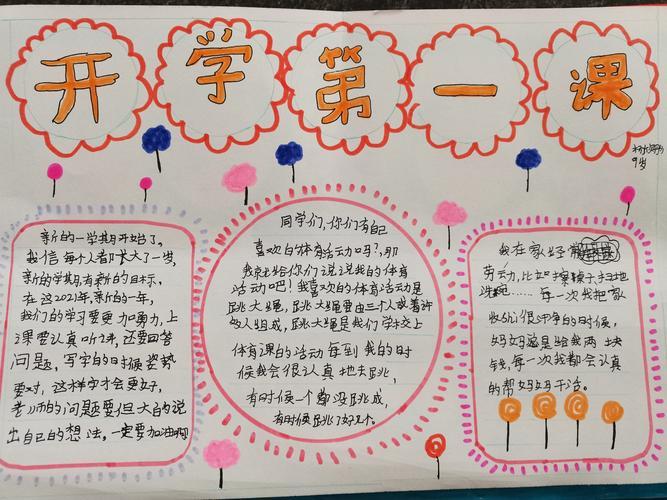 开学第一课
9岁
新的一学期开始了。
我相信每个人都长大了一岁,
新的学期有新的目标,
在这2021年,新的一年,
我们的学习要更加努力,上
课要认真听课,还要回答
问题,写字的时候姿势
要对,这样字才会更好,
老师的问题要但大的说
出自己的想法。一定要加油啊
同学们,你们有自己
喜欢的体育活动吗?,那
我就给你们说说我的体育
活动吧!我喜欢的体育活动是
跳大绳,跳大绳要由三个人或者许
多人组成,跳大绳是我们学校上
体育课的活动每到我的时
候我会很认真地去跳,
有时候一个都没跳成,
有时候跳了好几个。
我在家经常
劳动,比如擦桌子,扫地
洗碗……每一次我把家
收拾很干净的时候,
妈妈总是给我两块
钱,每一次我都会认真
的帮妈妈干活。